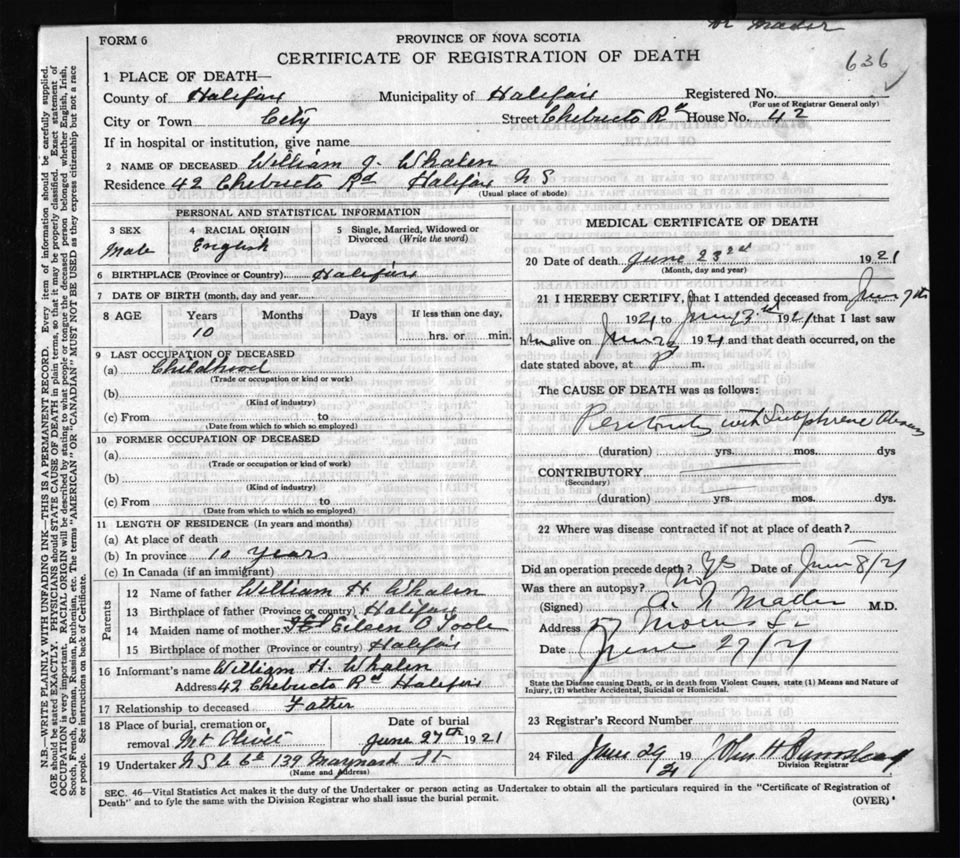 Dr Mader
FORM 6
PROVINCE OF NOVA SCOTIA
CERTIFICATE OF REGISTRATION OF DEATH
636
1 PLACE OF DEATH—
County of Halifax Municipality of Halifax Registered No.
(For use of Registrar General only)
City or Town City Street Chebucto Rd House No. 42
If in hospital or institution, give name
2 NAME OF DECEASED William J. Whalen
Residence 42 Chebucto Rd Halifax N S
(Usual place of abode)
PERSONAL AND STATISTICAL INFORMATION
3 SEX 4 RACIAL ORIGIN 5 Single, Married, Widowed or
Divorced (Write the word)
Male English
6 BIRTHPLACE (Province or Country) Halifax
7 DATE OF BIRTH (month, day and year)
8 AGE Years Months Days If less than one day,
10 hrs. or min.
9 LAST OCCUPATION OF DECEASED
(a) Childhood
(Trade or occupation or kind or work)
(b)
(Kind of industry)
(c) From to
(Date from which to which so employed)
10 FORMER OCCUPATION OF DECEASED
(a)
(Trade or occupation or kind of work)
(b)
(Kind of industry)
(c) From to
(Date from which to which so employed)
11 LENGTH OF RESIDENCE (In years and months)
(a) At place of death
(b) In province 10 years
(c) In Canada (if an immigrant)
Parents
12 Name of father William H Whalen
13 Birthplace of father (Province or country) Halifax
14 Maiden name of mother Eileen O Toole
15 Birthplace of mother (Province or country) Halifax
16 Informant's name William H. Whalen
Address 42 Chebucto Rd Halifax
17 Relationship to deceased Father
18 Place of burial, cremation or Date of burial
removal Mt Olivet June 27th 1921
19 Undertaker N S U Co 139 Maynard St
(Name and Address)
MEDICAL CERTIFICATE OF DEATH
20 Date of death June 23rd 1921
(Month, day and year)
21 I HEREBY CERTIFY, that I attended deceased from June 7th
1921 to June 1921 that I last saw
him alive on June 1921 and that death occurred, on the
date stated above, at P m.
The CAUSE OF DEATH was as follows:
Peritonitis with Subphrenic Abscess
(duration) yrs. mos. dys
CONTRIBUTORY
(Secondary)
(duration) yrs. mos. dys.
22 Where was disease contracted if not at place of death?
Did an operation precede death? Yes Date of June 8/21
Was there an autopsy? No
(Signed) A. N Mader M.D.
Address 57 Morris St
Date June 27/21
State the Disease causing Death, or in death from Violent Causes, state (1) Means and Nature of
Injury, (2) whether Accidental, Suicidal or Homicidal.
23 Registrar's Record Number
24 Filed June 29 19 21 John H Barnstead
Division Registrar
SEC. 46—Vital Statistics Act makes it the duty of the Undertaker or person acting as Undertaker to obtain all the particulars required in the "Certificate of Registration of
Death" and to fyle the same with the Division Registrar who shall issue the burial permit.
(OVER)
N.B.—WRITE PLAINLY WITH UNFADING INK—THIS IS A PERMANENT RECORD. Every item of information should be carefully supplied.
AGE should be stated EXACTLY. PHYSICIANS should STATE CAUSE OF DEATH in plain terms, so that it may be properly classified. Exact statement of
OCCUPATION is very important. RACIAL ORIGIN will be described by stating to what people or tongue the deceased person belonged whether English, Irish,
Scotch, French, German, Russian, Ruthenian, etc. The terms "AMERICAN" OR "CANADIAN" MUST NOT BE USED as they express citizenship but not a race
or people. See instructions on back of Certificate.